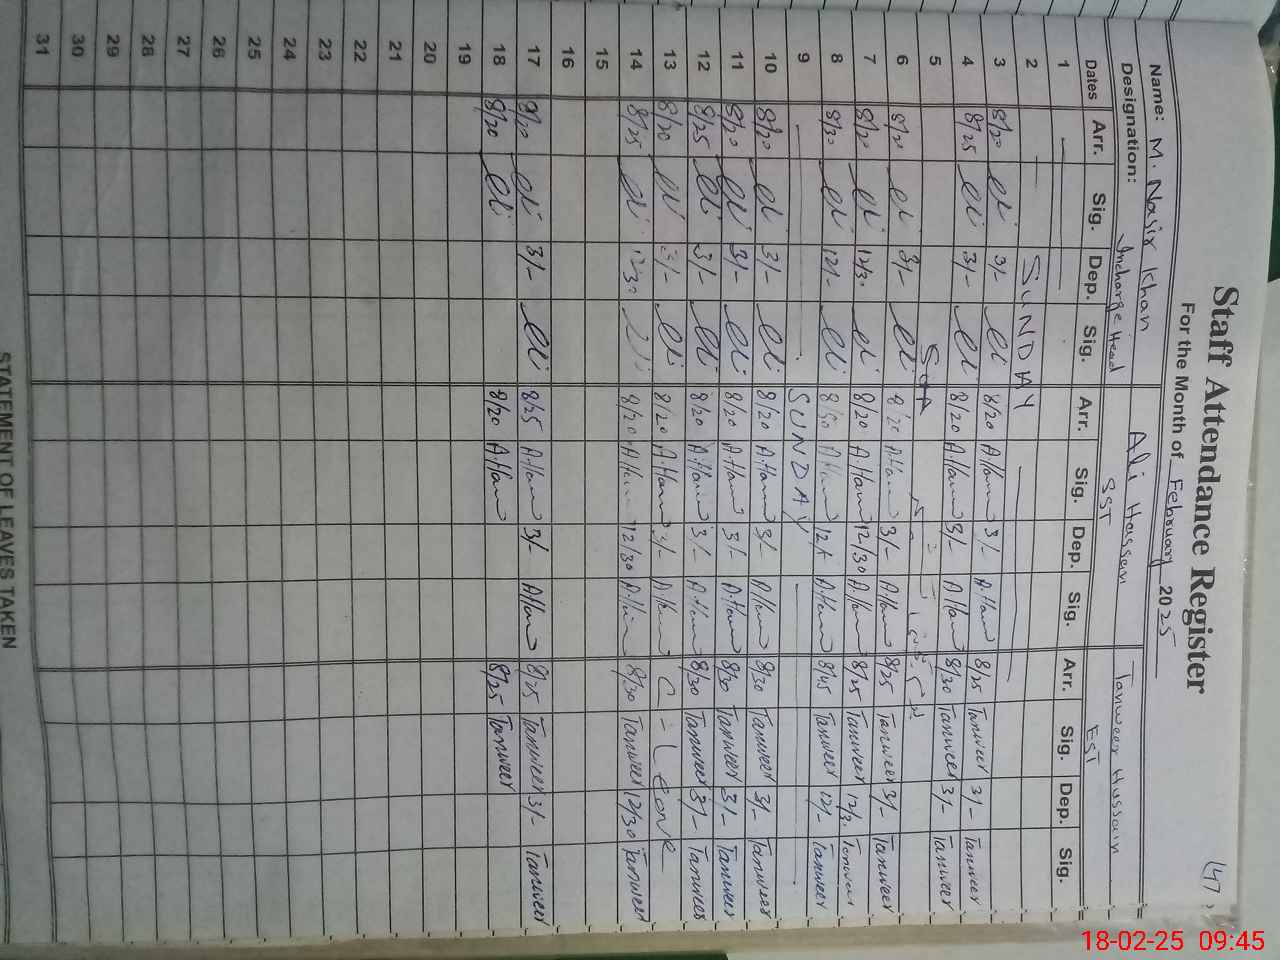 Staff Attendance Register
(47)
For the Month of February 2025
Name: M. Nasir Khan Ali Hassan Tanweer Hussain
Designation: Incharge Head SST EST
Dates Arr. Sig. Dep. Sig. Arr. Sig. Dep. Sig. Arr. Sig. Dep. Sig.
1
2 SUNDAY
3 8/20 3/- 8/20 3/- 8/25 Tanweer 3/- Tanweer
4 8/25 3/- 8/20 3/- 8/30 Tanweer 3/- Tanweer
5
6 8/20 3/- 8/20 3/- 8/25 Tanweer 3/- Tanweer
7 8/20 12/30 8/20 12/30 8/25 Tanweer 12/30 Tanweer
8 8/30 12/- 8/30 12/- 8/45 Tanweer 12/- Tanweer
9 SUNDAY
10 8/20 3/- 8/20 3/- 8/30 Tanweer 3/- Tanweer
11 8/20 3/- 8/20 3/- 8/30 Tanweer 3/- Tanweer
12 8/25 3/- 8/20 3/- 8/30 Tanweer 3/- Tanweer
13 8/20 3/- 8/20 3/- C-Leave
14 8/25 12/30 8/20 12/30 8/30 Tanweer 12/30 Tanweer
15
16
17 8/20 3/- 8/25 3/- 8/25 Tanweer 3/- Tanweer
18 8/20 8/20 8/25 Tanweer
19
20
21
22
23
24
25
26
27
28
29
30
31
STATEMENT OF LEAVES TAKEN
18-02-25 09:45